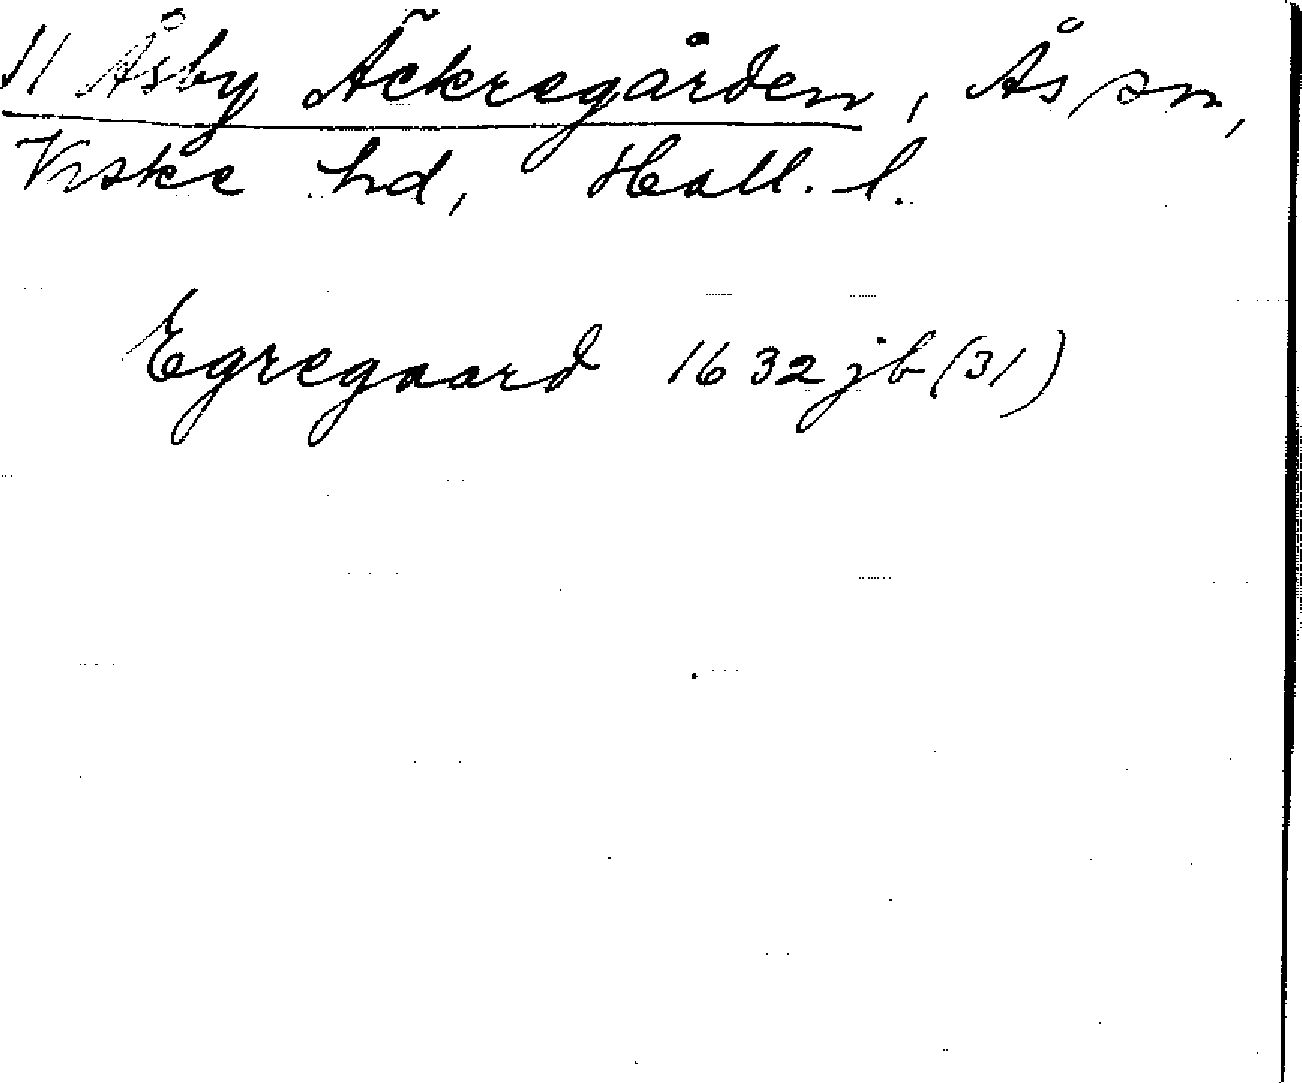 11 Åsby Äckregården, Ås sn,
Viske hd, Hall. l.
Egregaard 1632 jb (31)